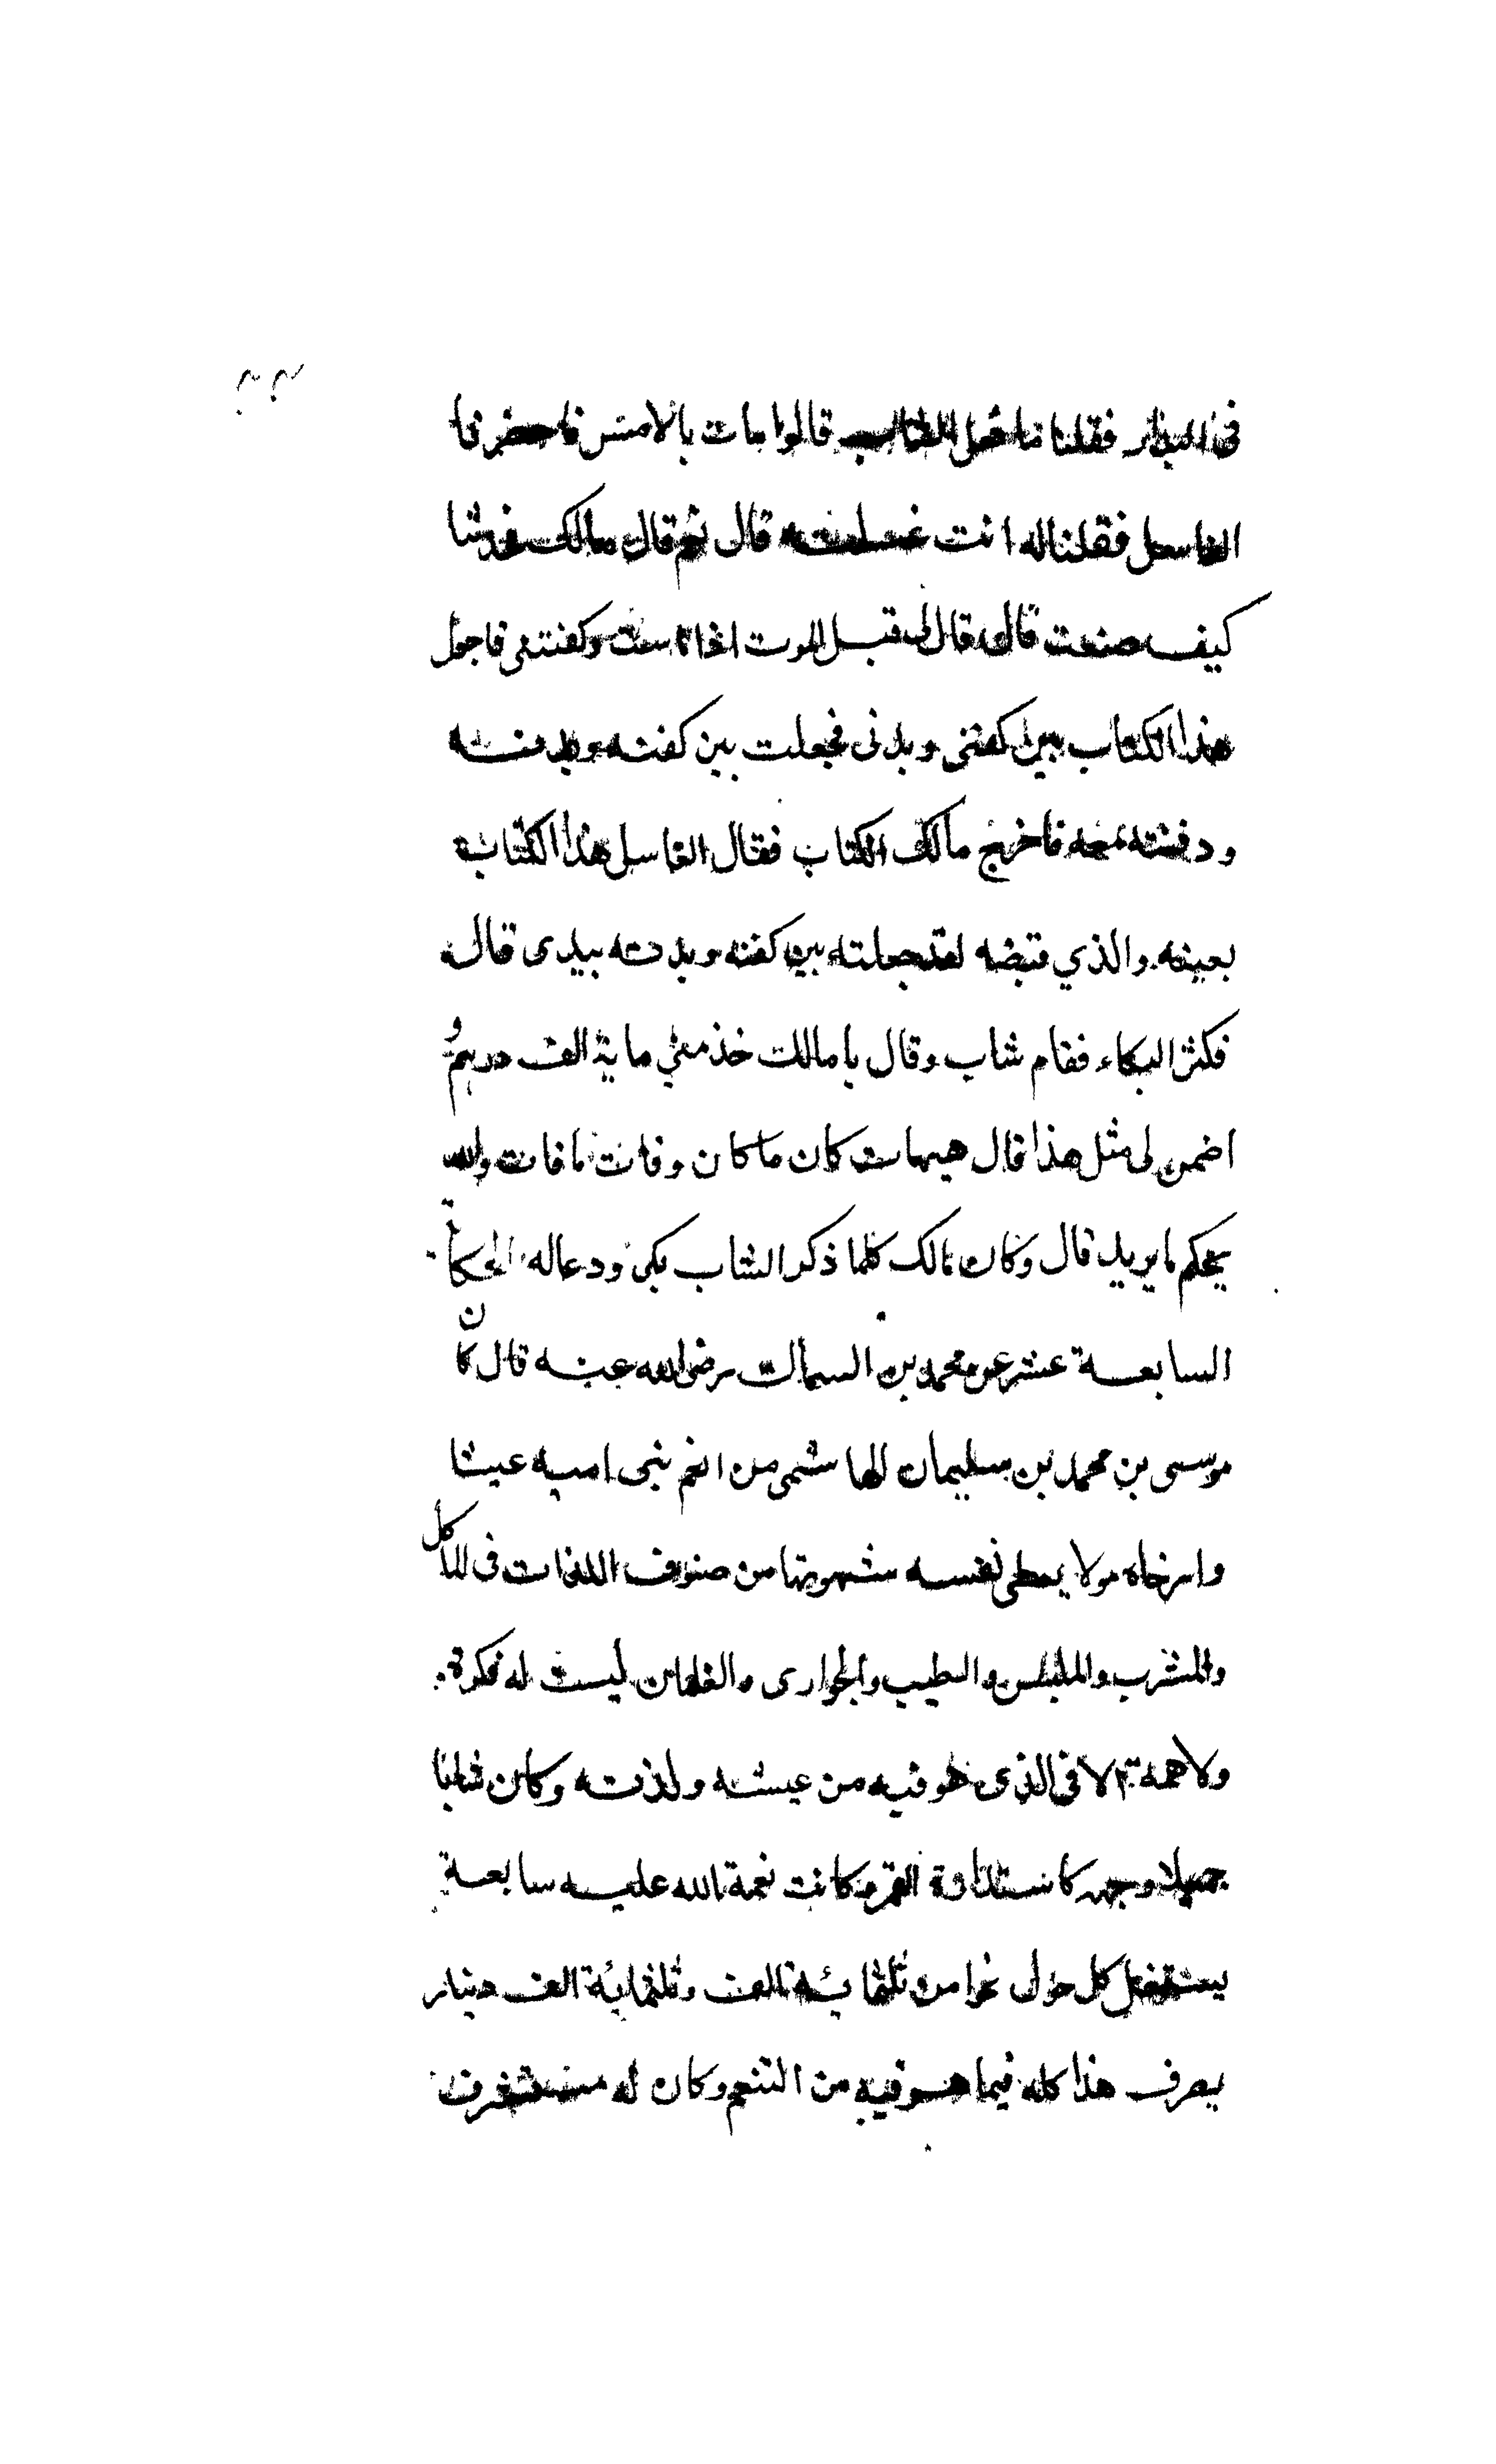 في الدار فقلنا ما فعل الشاب قالوا مات بالامس فاحضرنا
الغاسل فقلنا له انت غسلته قال نعم قال مالك فحدثنا
كيف صنعت قال قال لي قبل الموت اذا انا مت وكفنتني فاجعل
هذا الكتاب بين كفني وبدني فجعلت بين كفنه وبدنه
ودفنته معه فاخرج مالك الكتاب فقال الغاسل هذا الكتاب
بعينه والذي قبضه لقد جعلته بين كفنه وبدنه بيدي قال
فكثر البكاء فقام شاب وقال يا مالك خذ مني ماية الف درهم و
اضمن لي مثل هذا قال هيهات كان ما كان وفات ما فات والله
يحكم ما يريد قال وكان مالك كلما ذكر الشاب بكى ودعا له الحكاية
السابعة عشر عن محمد بن السماك رضي الله عنه قال كان
موسى بن محمد بن سليمان الهاشمي من انعم بني اميه عيشا
وارخاه يعطي نفسه شهوتها من صنوف اللذات في الماكل
والمشرب والملبس والطيب والجواري والغلمان ليست له فكرة
ولا همة الا في الذي هو فيه من عيشه ولذته وكان شابا
جميلا وجهه كاستدارة القمر وكانت نعمة الله عليه سابعة
يستغل كل حول نحوا من ثلثمائة الف وثلثماية الف دينار
يصرف هذا كله فيما هو فيه من التنعم وكان له مستشرف